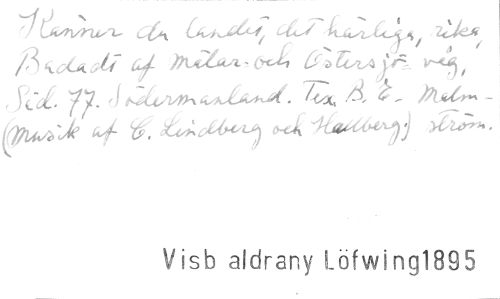 Känner du landet, det härliga, rika,
Badadt af mälar- och Östersjö- våg,
Sid. 77. Södermanland. Tex. B. E. Malm-
(Musik af C. Lindberg och Hallberg.) ström.
Visb aldrany Löfwing1895